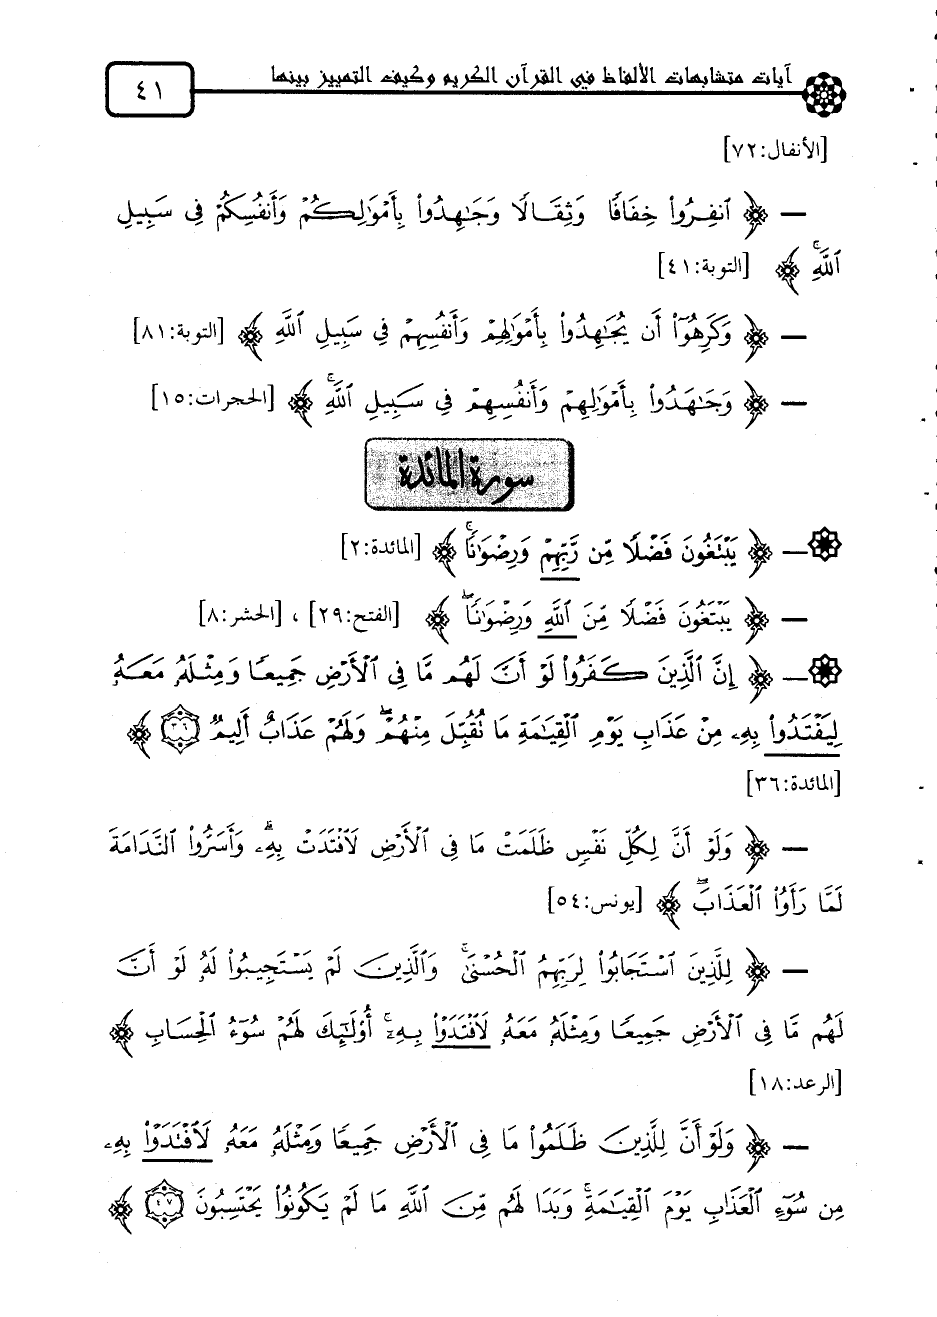 آيات متشابهات الألفاظ في القرآن الكريم وكيف التمييز بينها
٤١
[الأنفال:٧٢]
— ﴿ ٱنفِرُواْ خِفَافًا وَثِقَالًا وَجَٰهِدُواْ بِأَمْوَٰلِكُمْ وَأَنفُسِكُمْ فِى سَبِيلِ
ٱللَّهِۚ ﴾ [التوبة:٤١]
— ﴿ وَكَرِهُوٓاْ أَن يُجَٰهِدُواْ بِأَمْوَٰلِهِمْ وَأَنفُسِهِمْ فِى سَبِيلِ ٱللَّهِ ﴾ [التوبة:٨١]
— ﴿ وَجَٰهَدُواْ بِأَمْوَٰلِهِمْ وَأَنفُسِهِمْ فِى سَبِيلِ ٱللَّهِۚ ﴾ [الحجرات:١٥]
سورة المائدة
— ﴿ يَبْتَغُونَ فَضْلًا مِّن رَّبِّهِمْ وَرِضْوَٰنًاۚ ﴾ [المائدة:٢]
— ﴿ يَبْتَغُونَ فَضْلًا مِّنَ ٱللَّهِ وَرِضْوَٰنًاۖ ﴾ [الفتح:٢٩] ، [الحشر:٨]
— ﴿ إِنَّ ٱلَّذِينَ كَفَرُواْ لَوْ أَنَّ لَهُم مَّا فِى ٱلْأَرْضِ جَمِيعًا وَمِثْلَهُۥ مَعَهُۥ
لِيَفْتَدُواْ بِهِۦ مِنْ عَذَابِ يَوْمِ ٱلْقِيَٰمَةِ مَا تُقُبِّلَ مِنْهُمْۖ وَلَهُمْ عَذَابٌ أَلِيمٌ ٣٦ ﴾
[المائدة:٣٦]
— ﴿ وَلَوْ أَنَّ لِكُلِّ نَفْسٍ ظَلَمَتْ مَا فِى ٱلْأَرْضِ لَٱفْتَدَتْ بِهِۦۗ وَأَسَرُّواْ ٱلنَّدَامَةَ
لَمَّا رَأَوُاْ ٱلْعَذَابَۖ ﴾ [يونس:٥٤]
— ﴿ لِلَّذِينَ ٱسْتَجَابُواْ لِرَبِّهِمُ ٱلْحُسْنَىٰۚ وَٱلَّذِينَ لَمْ يَسْتَجِيبُواْ لَهُۥ لَوْ أَنَّ
لَهُم مَّا فِى ٱلْأَرْضِ جَمِيعًا وَمِثْلَهُۥ مَعَهُۥ لَٱفْتَدَوْاْ بِهِۦٓۚ أُوْلَٰٓئِكَ لَهُمْ سُوٓءُ ٱلْحِسَابِ ﴾
[الرعد:١٨]
— ﴿ وَلَوْ أَنَّ لِلَّذِينَ ظَلَمُواْ مَا فِى ٱلْأَرْضِ جَمِيعًا وَمِثْلَهُۥ مَعَهُۥ لَٱفْتَدَوْاْ بِهِۦ
مِن سُوٓءِ ٱلْعَذَابِ يَوْمَ ٱلْقِيَٰمَةِۚ وَبَدَا لَهُم مِّنَ ٱللَّهِ مَا لَمْ يَكُونُواْ يَحْتَسِبُونَ ٤٧ ﴾